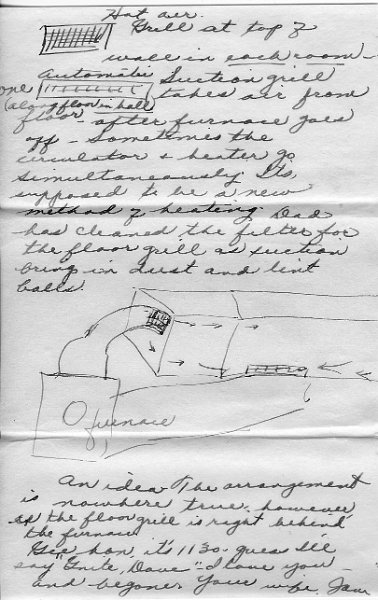 Hot air.
Grill at top of
wall in each room -
Automatic Suction grill
one (along floor in hall) takes air from
floor - after furnace goes
off - Sometimes the
circulator & heater go
simultaneously. Its
supposed to be a new
method of heating. Dad
has cleaned the filter for
the floor grill as suction
bring in dust and lint
balls.
furnace
An idea - The arrangement
is nowhere true, however
as the floor grill is right behind
the furnace.
Gee hon, it's 11:30 - guess I'll
say "Gnite, Dave" I love you -
and begone. Your wife, Jam